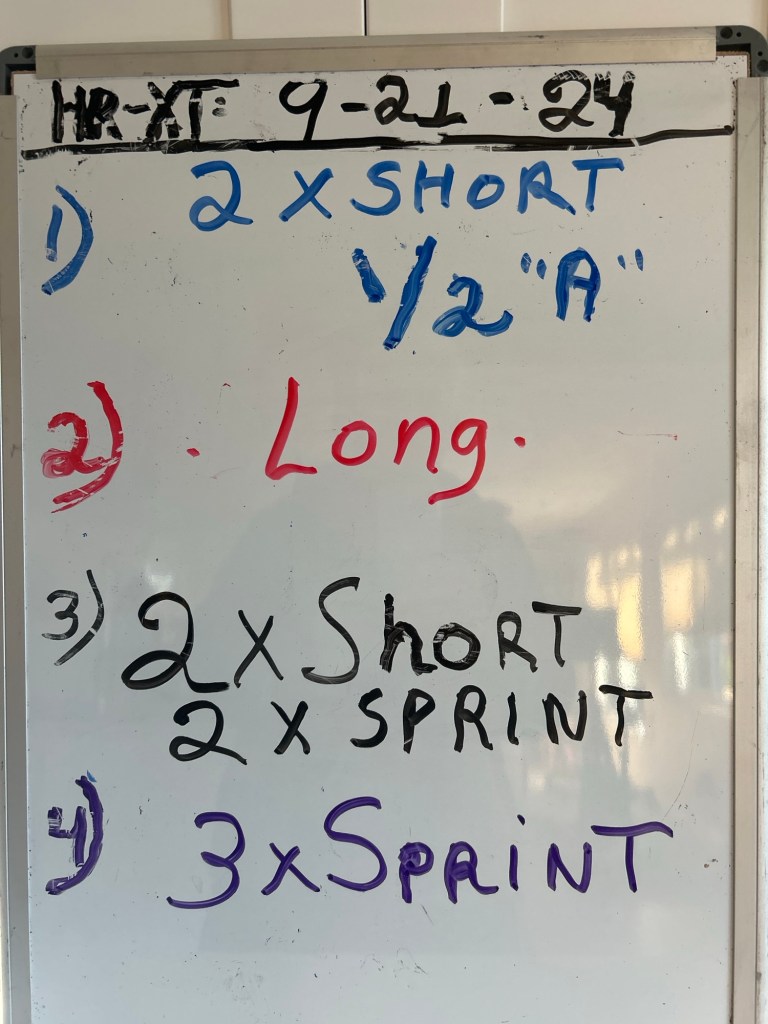 HR-XT: 9-21-24
1) 2 X SHORT
1/2 "A"
2) . Long.
3) 2 x ShoRT
2 X SPRINT
4) 3 x SPRiNT